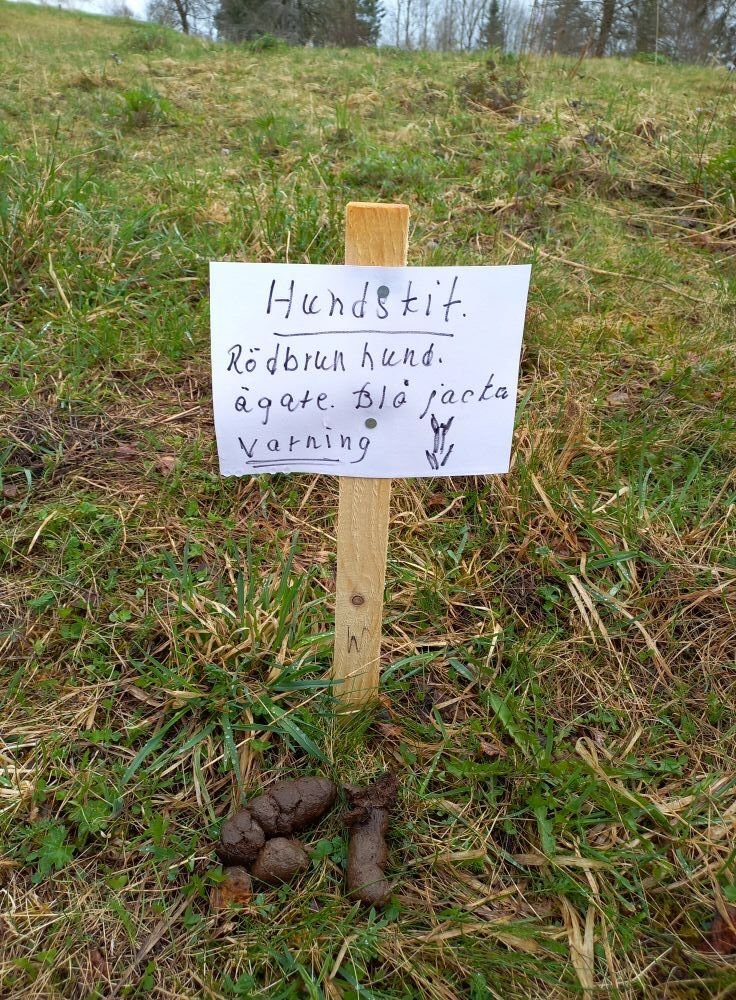 Hundskit.
Rödbrun hund.
ägare. Blå jacka
Varning
W